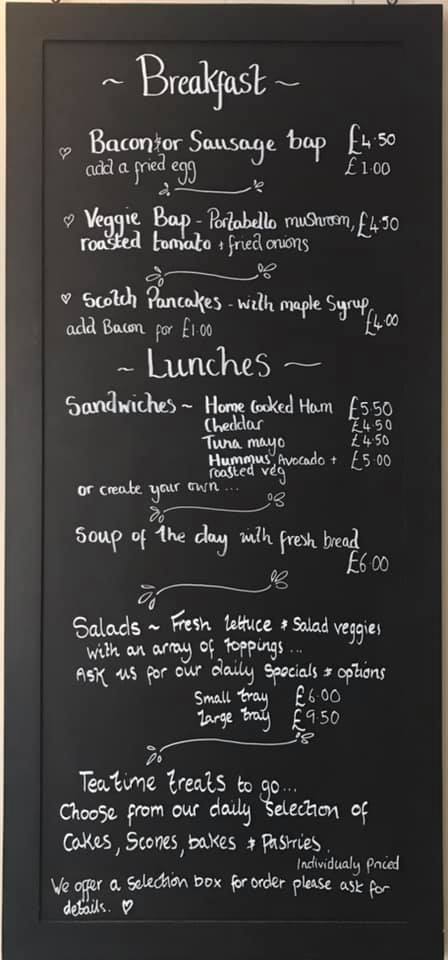 ~ Breakfast ~
♡ Bacon + or Sausage bap £4.50
add a fried egg £1.00
♡ Veggie Bap - Portabello mushroom, £4.50
roasted tomato + fried onions
♡ Scotch Pancakes - with maple Syrup
£4.00
add Bacon for £1.00
~ Lunches ~
Sandwiches ~ Home Cooked Ham £5.50
Cheddar £4.50
Tuna mayo £4.50
Hummus Avocado + £5.00
roasted veg
or create your own ...
Soup of the day with fresh bread
£6.00
Salads ~ Fresh lettuce & Salad veggies
with an array of toppings ...
Ask us for our daily specials & options
Small tray £6.00
Large tray £9.50
Teatime treats to go...
Choose from our daily selection of
Cakes, Scones, bakes & Pastries.
Individualy priced
We offer a selection box for order please ask for
details. ♡